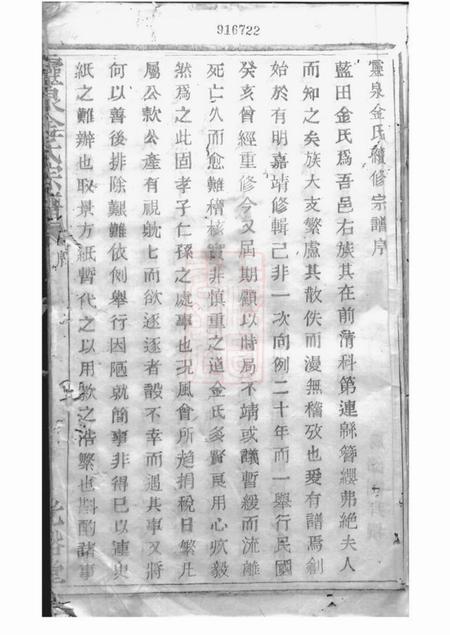 916722
靈泉金氏續修宗譜序
藍田金氏爲吾邑右族其在前清科第連緜簪纓弗絶夫人
而知之矣族大支繁慮其散佚而漫無稽攷也爰有譜焉創
始於有明嘉靖修輯已非一次向例二十年而一舉行民國
癸亥曾經重修今又屆期顧以時局不靖或議暫緩而流離
死亡久而愈難稽核實非慎重之道金氏羣賢展用心吹毅
然爲之此固孝子仁孫之處事也况風會所趋捐税日繁凡
屬公款公產有視眈七而欲逐逐者設不幸而遇其事又將
何以善後排除艱難依例舉行因陋就簡事非得已以連與
紙之難辦也取景方紙暫代之以用款之浩繁也斟酌諸事
靈泉金氏宗譜
序